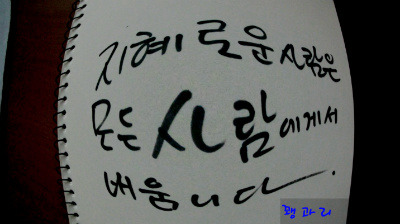 지혜로운 사람은
모든 사람에게서
배웁니다.
꽹과리